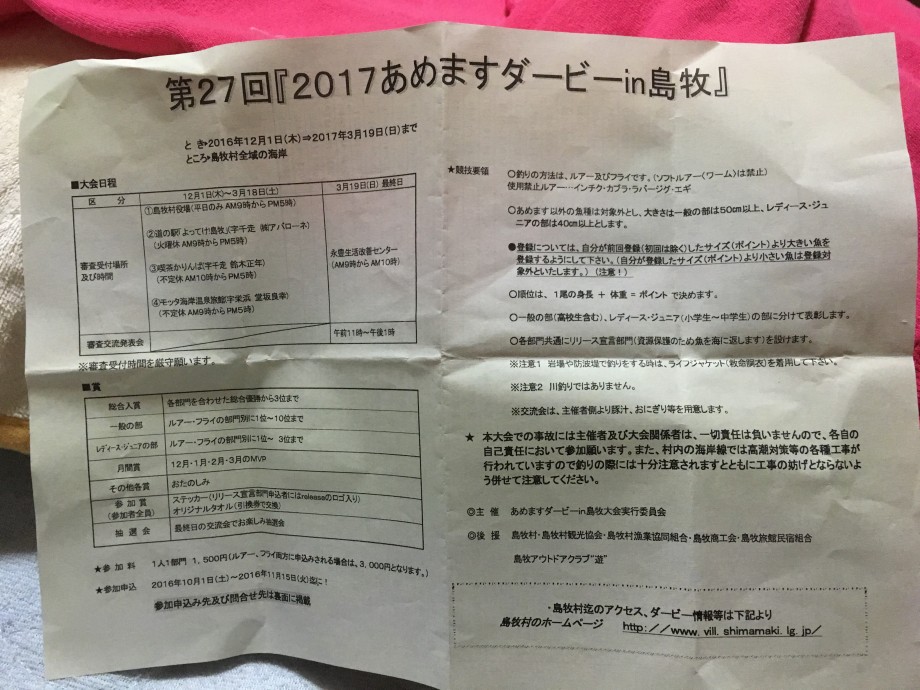 第27回『2017あめますダービーin島牧』
とき➧2016年12月1日(木)⇒2017年3月19日(日)まで
ところ➧島牧村全域の海岸
■大会日程
区　分
12月1日(木)～3月18日(土)
3月19日(日) 最終日
審査受付場所
及び時間
①島牧村役場(平日のみ AM9時からPM5時)
②道の駅「よってけ!島牧」(字千走 ㈱アバローネ)
(火曜休 AM9時からPM5時)
③喫茶かりんぱ(字千走 鈴木正年)
(不定休 AM10時からPM5時)
④モッタ海岸温泉旅館(字栄浜 堂坂良幸)
(不定休 AM9時からPM5時)
永豊生活改善センター
(AM9時からAM10時)
審査交流発表会
午前11時～午後1時
※審査受付時間を厳守願います。
■賞
総合入賞
各部門を合わせた総合優勝から3位まで
一般の部
ルアー・フライの部門別に1位～10位まで
レディース・ジュニアの部
ルアー・フライの部門別に1位～ 3位まで
月間賞
12月・1月・2月・3月のMVP
その他各賞
おたのしみ
参 加 賞
(参加者全員)
ステッカー(リリース宣言部門申込者にはreleaseのロゴ入り)
オリジナルタオル(引換券で交換)
抽 選 会
最終日の交流会でお楽しみ抽選会
★参 加 料　1人1部門 1,500円(ルアー、フライ両方に申込みされる場合は、3,000円となります。)
★参加申込　2016年10月1日(土)～2016年11月15日(火)迄に!
参加申込み先及び問合せ先は裏面に掲載
★競技要領
○釣りの方法は、ルアー及びフライです。(ソフトルアー(ワーム)は禁止)
使用禁止ルアー…インチク・カブラ・ラバージグ・エギ
○あめます以外の魚種は対象外とし、大きさは一般の部は50㎝以上、レディース・ジュ
ニアの部は40㎝以上とします。
●登録については、自分が前回登録(初回は除く)したサイズ(ポイント)より大きい魚を
登録するようにして下さい。(自分が登録したサイズ(ポイント)より小さい魚は登録対
象外といたします。)(注意!)
○順位は、1尾の身長 + 体重 = ポイント で決めます。
○一般の部(高校生含む)、レディース・ジュニア(小学生～中学生)の部に分けて表彰します。
○各部門共通にリリース宣言部門(資源保護のため魚を海に返します)を設けます。
※注意1 岩場や防波堤で釣りをする時は、ライフジャケット(救命胴衣)を着用して下さい。
※注意2 川釣りではありません。
※交流会は、主催者側より豚汁、おにぎり等を用意します。
★ 本大会での事故には主催者及び大会関係者は、一切責任は負いませんので、各自の
自己責任において参加願います。また、村内の海岸線では高潮対策等の各種工事が
行われていますので釣りの際には十分注意されますとともに工事の妨げとならないよ
う併せて注意してください。
◎主 催　あめますダービーin島牧大会実行委員会
◎後 援　島牧村・島牧村観光協会・島牧村漁業協同組合・島牧商工会・島牧旅館民宿組合
島牧アウトドアクラブ"遊"
・島牧村迄のアクセス、ダービー情報等は下記より
島牧村のホームページ　http://www.vill.shimamaki.lg.jp/